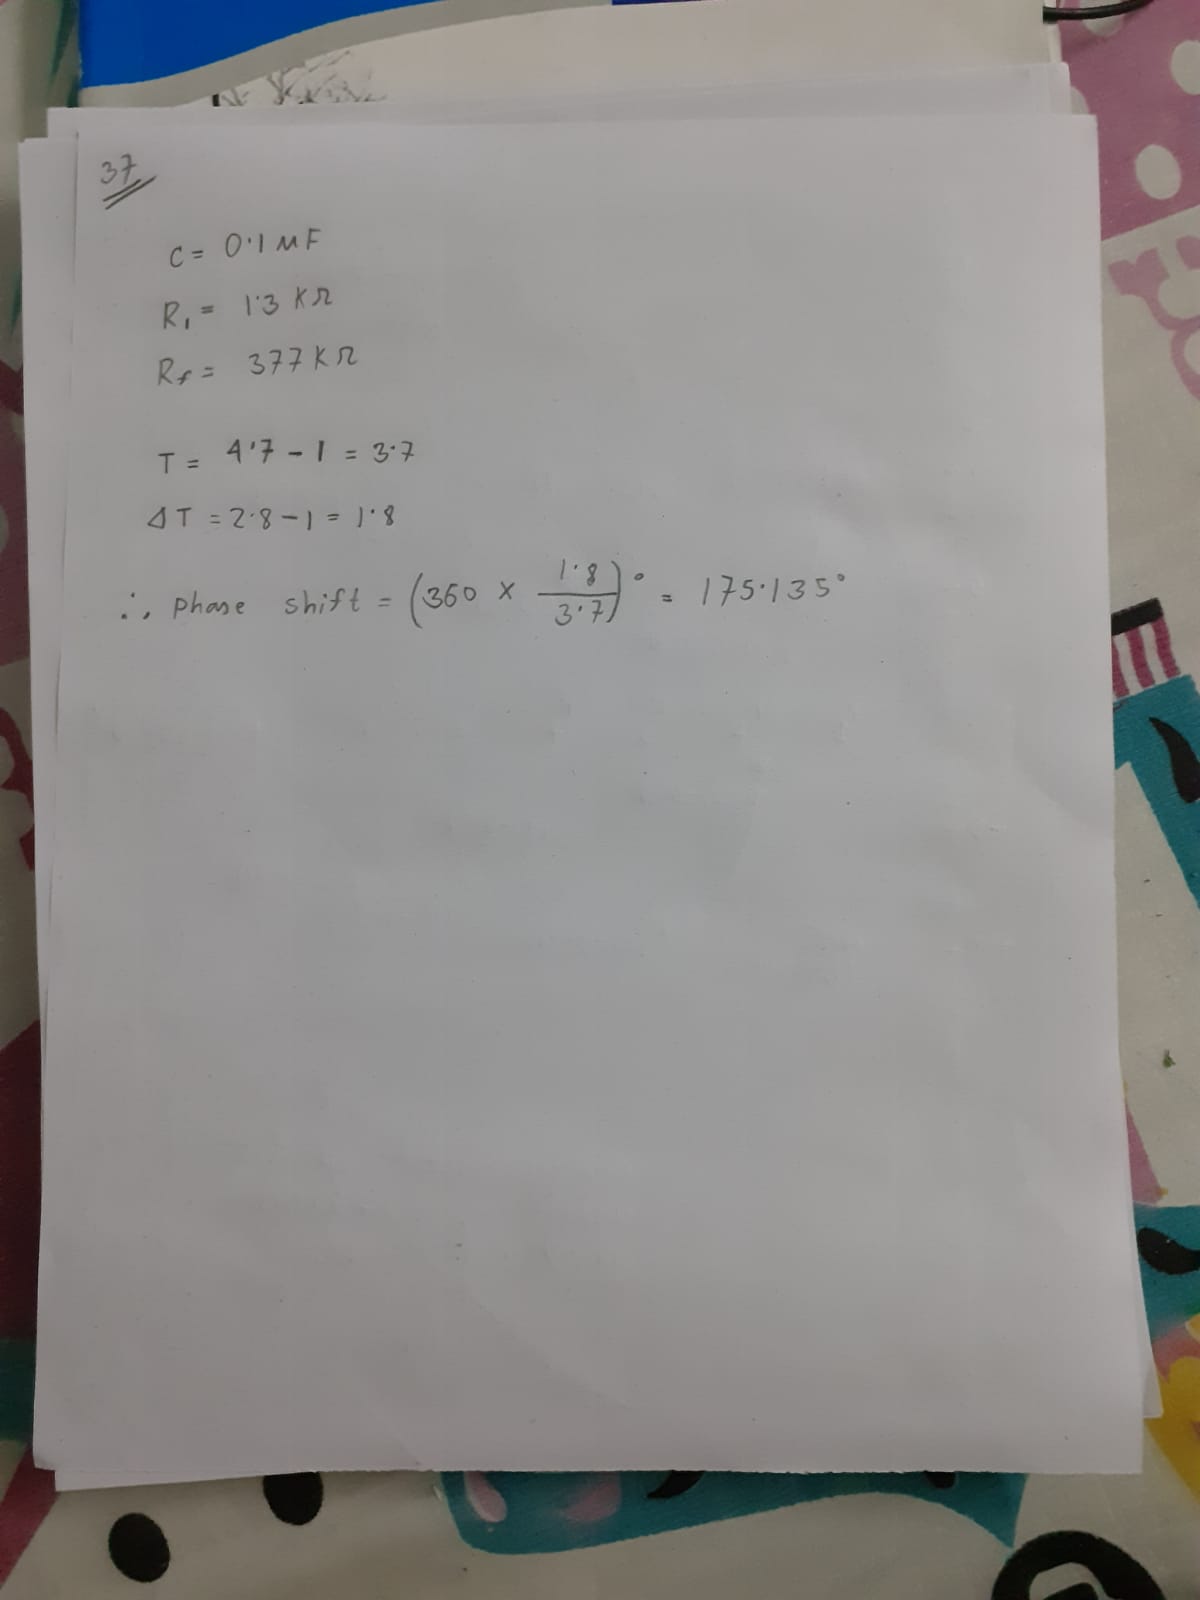 37
C = 0.1 MF
R1 = 1.3 KΩ
Rf = 377 KΩ
T = 4.7 - 1 = 3.7
ΔT = 2.8 - 1 = 1.8
∴, phase shift = (360 × 1.8/3.7)° = 175.135°